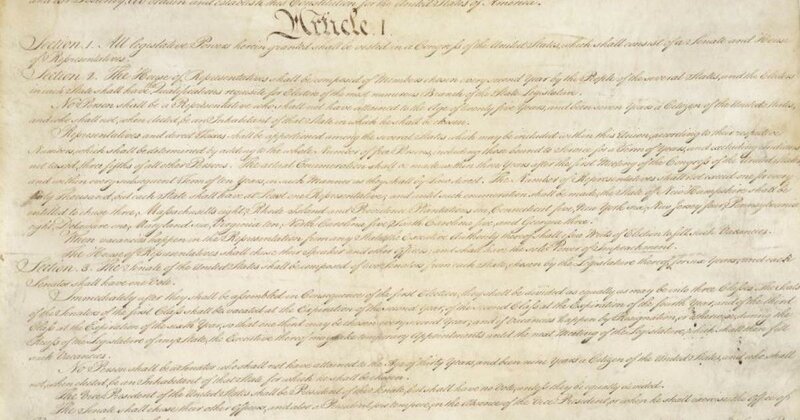 and our Posterity, do ordain and establish this Constitution for the United States of America.
Article. I.
Section. 1. All legislative Powers herein granted shall be vested in a Congress of the United States, which shall consist of a Senate and House
of Representatives.
Section. 2. The House of Representatives shall be composed of Members chosen every second Year by the People of the several States, and the Electors
in each State shall have the Qualifications requisite for Electors of the most numerous Branch of the State Legislature.
No Person shall be a Representative who shall not have attained to the Age of twenty five Years, and been seven Years a Citizen of the United States,
and who shall not, when elected, be an Inhabitant of that State in which he shall be chosen.
Representatives and direct Taxes shall be apportioned among the several States which may be included within this Union, according to their respective
Numbers, which shall be determined by adding to the whole Number of free Persons, including those bound to Service for a Term of Years, and excluding Indians
not taxed, three fifths of all other Persons. The actual Enumeration shall be made within three Years after the first Meeting of the Congress of the United States,
and within every subsequent Term of ten Years, in such Manner as they shall by Law direct. The Number of Representatives shall not exceed one for every
thirty Thousand, but each State shall have at Least one Representative; and until such enumeration shall be made, the State of New Hampshire shall be
entitled to chuse three, Massachusetts eight, Rhode-Island and Providence Plantations one, Connecticut five, New-York six, New Jersey four, Pennsylvania
eight, Delaware one, Maryland six, Virginia ten, North Carolina five, South Carolina five, and Georgia three.
When vacancies happen in the Representation from any State, the Executive Authority thereof shall issue Writs of Election to fill such Vacancies.
The House of Representatives shall chuse their Speaker and other Officers; and shall have the sole Power of Impeachment.
Section. 3. The Senate of the United States shall be composed of two Senators from each State, chosen by the Legislature thereof, for six Years; and each
Senator shall have one Vote.
Immediately after they shall be assembled in Consequence of the first Election, they shall be divided as equally as may be into three Classes. The Seats
of the Senators of the first Class shall be vacated at the Expiration of the second Year, of the second Class at the Expiration of the fourth Year, and of the third
Class at the Expiration of the sixth Year, so that one third may be chosen every second Year; and if Vacancies happen by Resignation, or otherwise, during the
Recess of the Legislature of any State, the Executive thereof may make temporary Appointments until the next Meeting of the Legislature, which shall then fill
such Vacancies.
No Person shall be a Senator who shall not have attained to the Age of thirty Years, and been nine Years a Citizen of the United States, and who shall
not, when elected, be an Inhabitant of that State for which he shall be chosen.
The Vice President of the United States shall be President of the Senate, but shall have no Vote, unless they be equally divided.
The Senate shall chuse their other Officers, and also a President pro tempore, in the Absence of the Vice President, or when he shall exercise the Office of